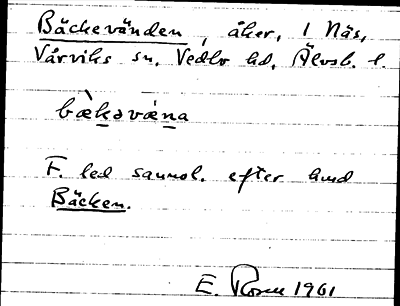 Bäckevänden, åker, 1 Näs,
Vårviks sn, Vedbo hd, Älvsb. l.
bæ̀kəvæna
F. led sannol. efter hmd
Bäcken.
E. Rosen 1961